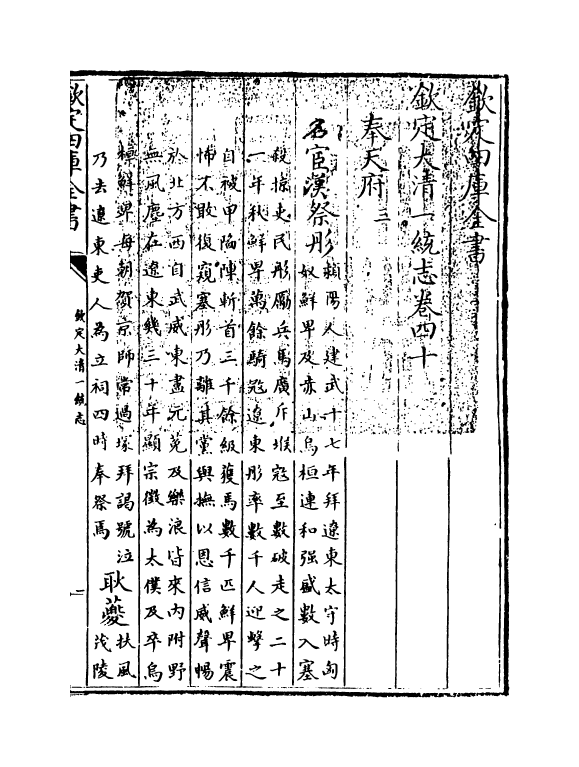 欽定四庫全書
欽定大清一統志卷四十
奉天府三
名宦漢祭彤
潁陽人建武十七年拜遼東太守時匈
奴鮮卑及赤山烏桓連和强盛數入塞
殺掠吏民彤勵兵馬廣斥堠寇至數破走之二十
一年秋鮮卑萬餘騎寇遼東彤率數千人迎擊之
自被甲陷陣斬首三千餘級獲馬數千匹鮮卑震
怖不敢復窺塞彤乃離其黨與撫以恩信威聲暢
於北方西自武威東盡元菟及樂浪皆來内附野
無風塵在遼東㡬三十年顯宗徵為太僕及卒烏
桓鮮卑每朝賀京師常過塚拜謁號泣
乃去遼東吏人為立祠四時奉祭焉
耿夔
扶風
茂陵
欽定四庫全書
欽定大清一統志
一